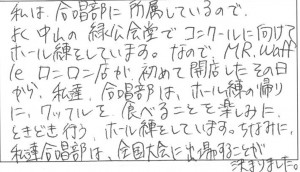 私は、合唱部に所属しているので、
よく中山の緑公会堂でコンクールに向けて
ホール練をしています。なので、MR.waff
le ロンロン店が、初めて開店したその日
から、私達、合唱部は、ホール練の帰り
に、ワッフルを、食べることを楽しみに
ときどき行う、ホール練をしています。ちなみに、
私達合唱部は、全国大会に出場することが
決まりました。